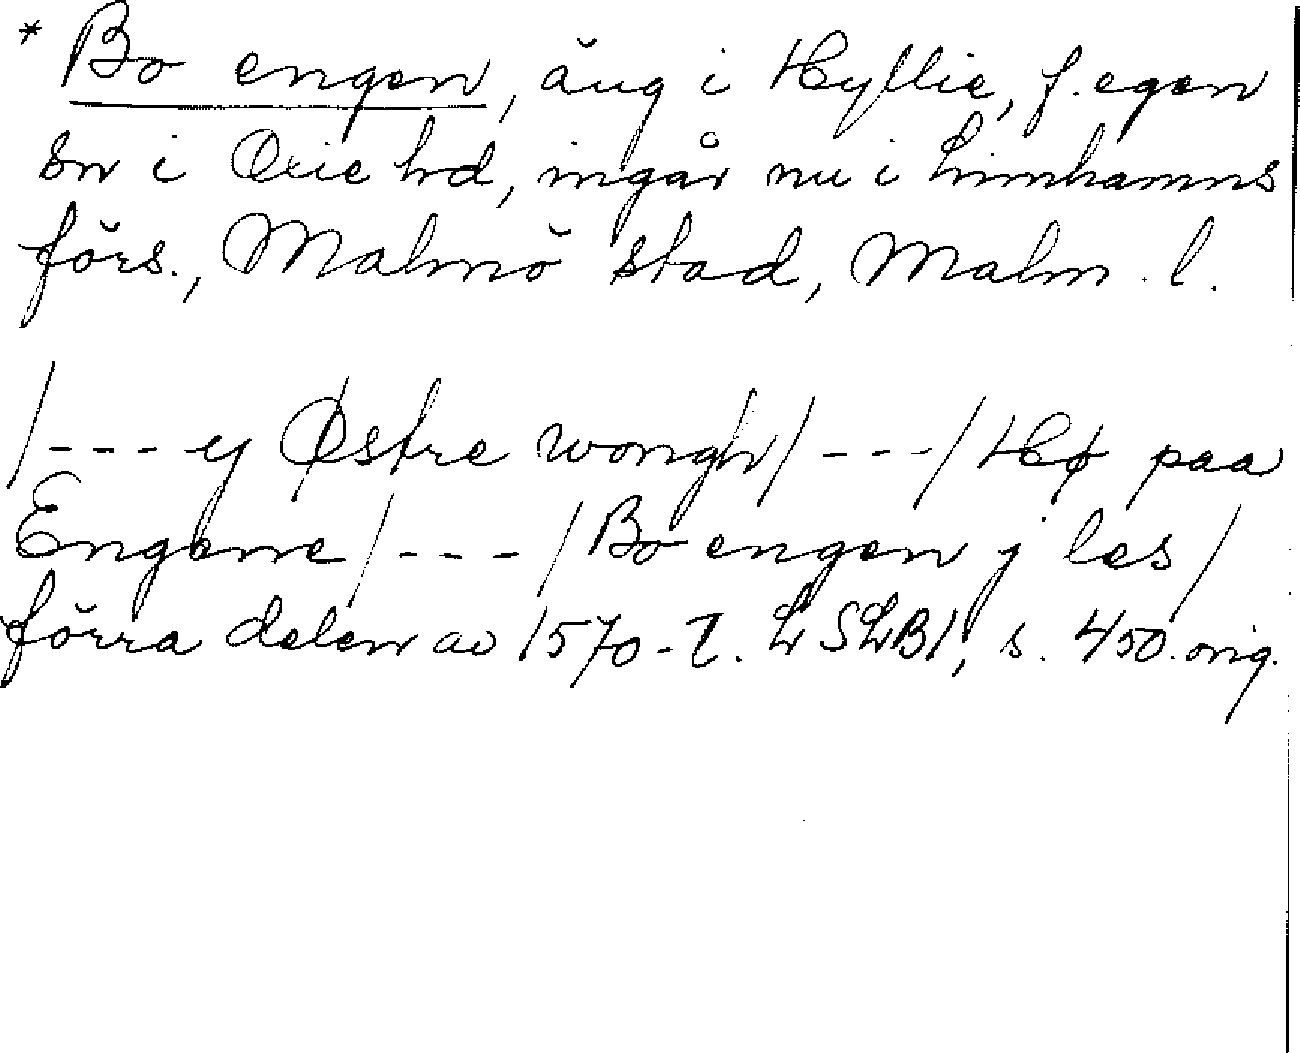 * Bo engen, äng i Hyllie, f. egen
sn i Oxie hd, ingår nu i Limhamns
förs., Malmö stad, Malm. l.
/--- y Østre wongh/ ---/ Hø paa
Engene/ ---/ Bo engen j les/
förra delen av 1570-t. L SLB1, s. 450. orig.